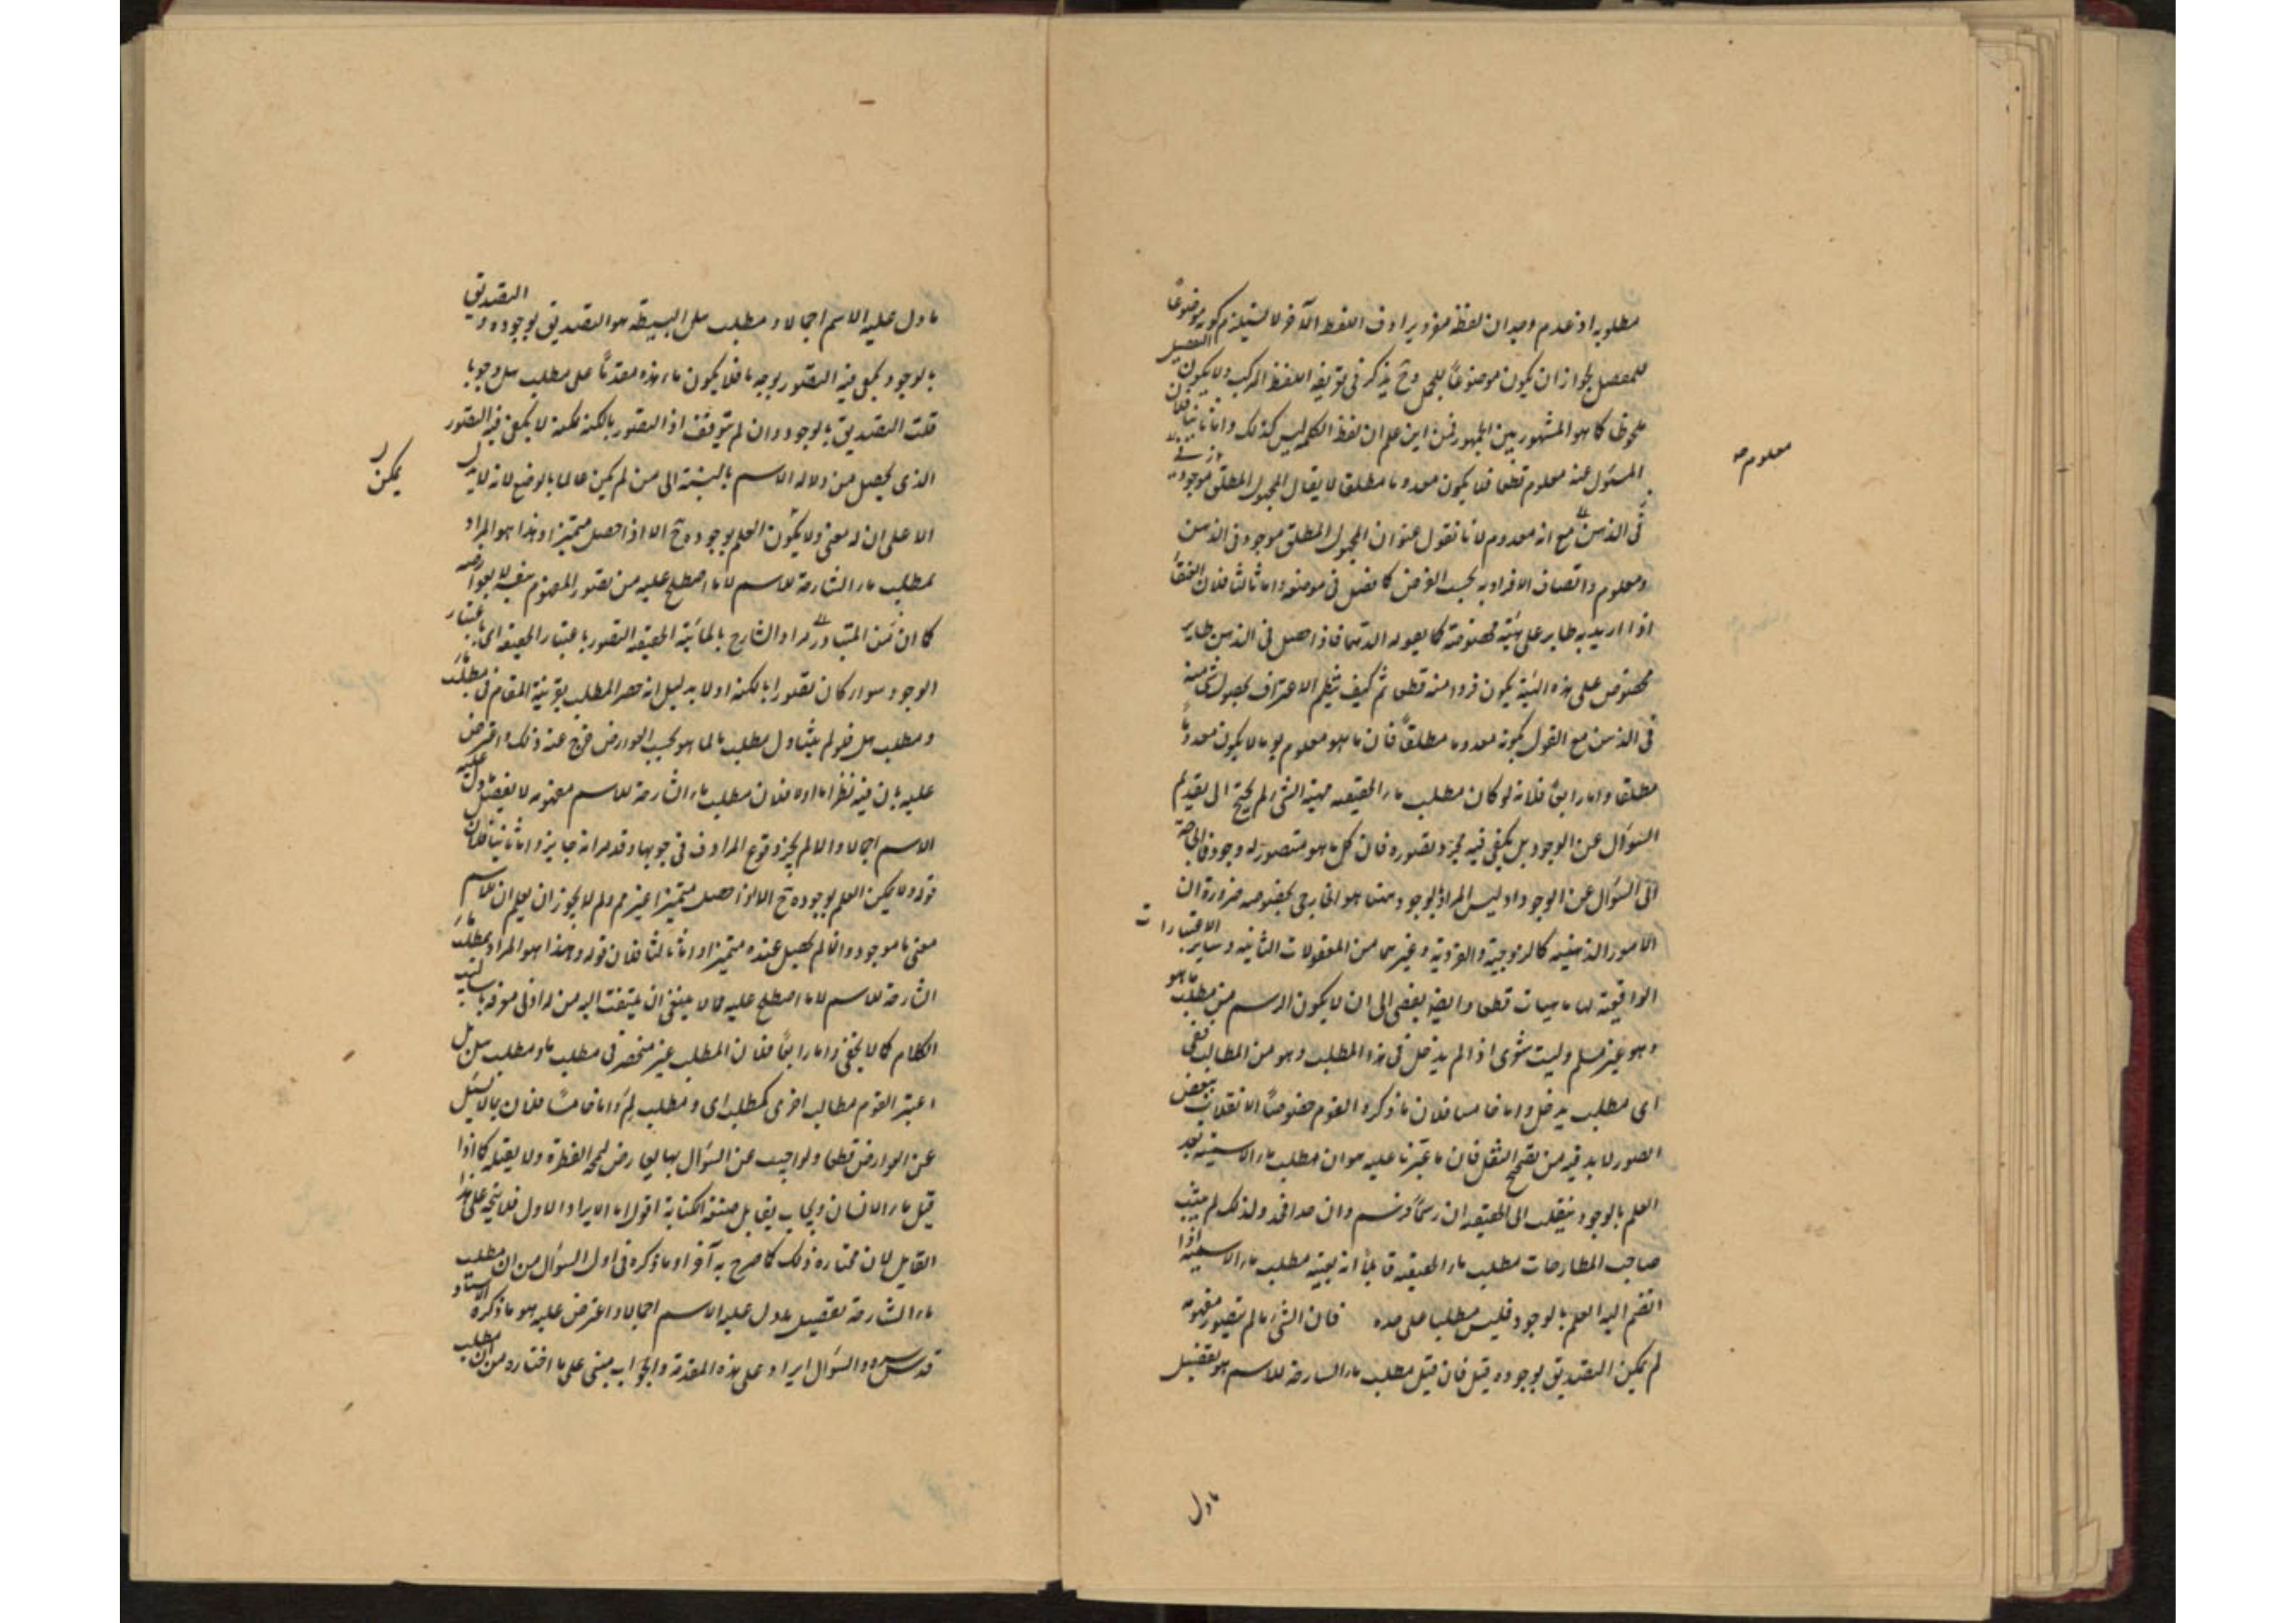 مطلوبه اذ عدم وجدان لفظ مفرد يرادف اللفظ الآخر لا يستلزم كونه موضوعًا
للمفصل لجواز ان يكون موضوعًا للمجمل وح يذكر فى تعريفه اللفظ المركب ولا يكون التفصيل
ملحوظا كما هو المشهور بين الجمهور فمن اين علم ان لفظ الكلمه ليس كذلك واما ثانيا فلان
المسئول عنه معلوم قطعا فلا يكون معدوما مطلقا لا يقال المجهول المطلق موجود
فى الذهن مع انه معدوم لانا نقول عنوان المجهول المطلق موجود فى الذهن
ومعلوم واتصاف الافراد به بحسب الفرض كما فصل فى موضعه واما ثالثا فلان العنقا
اذا اريد به طاير على هيئة مخصوصة كما يقوله القدما فاذا حصل فى الذهن طاير
مخصوص على هذه الهيئة يكون فردا منه قطعا ثم كيف ينظم الاعتراف بحصول شئ منه
فى الذهن مع القول بكونه معدوما مطلقًا فان ما هو معلوم بوجه ما لا يكون معدومًا
مطلقا واما رابعًا فلانه لو كان مطلب ماء الحقيقيه مهية الشئ لم يحتج الى تقديم
السؤال عن الوجود بل يكفى فيه مجرد تصوره فان كل ما هو متصور له وجود فما الحاجة
الى السؤال عن الوجود اذ ليس المراد بالوجود ههنا هو الخارجى بخصوصه ضرورة ان
الامور الذهنيه كالزوجية والفردية وغيرهما من المعقولات الثانيه وساير الاعتبارات
الواقعية لها ماهيات قطعا وايضا يفضى الى ان لا يكون الرسم من مطلب ما هو
وهو غير مسلم وليت شعرى اذا لم يدخل فى هذا المطلب وهو من المطالب ففى
اى مطلب يدخل واما خامسا فلان ما ذكره القوم خصوصًا الانقلاب ببعض
الصور لا بد فيه من تصحيح النقل فان ما عثرنا عليه هو ان مطلب ماء الاسمية بعد
العلم بالوجود ينقلب الى الحقيقيه ان رسمًا فرسم وان حدا فحد ولذلك لم يثبت
صاحب المطارحات مطلب ماء الحقيقيه قايلًا انه بعينه مطلب ماء الاسمية اذا
انضم اليه العلم بالوجود فليس مطلبا على حده فان الشئ ما لم يتصور مفهومه
لم يمكن التصديق بوجوده قيل فان قيل مطلب ماء الشارحة للاسم هو تفصيل
معلوم صح
مادل
مادل عليه الاسم اجمالا ومطلب هل البسيطة هو التصديق بوجوده والتصديق
بالوجود يكفى فيه التصور بوجه ما فلا يكون ماء هذه مقدمًا على مطلب هل وجوبا
قلت التصديق بالوجود وان لم يتوقف اذ التصور بالكنه لكنه لا يكفى فيه التصور
الذى يحصل من دلالة الاسم بالنسبة الى من لم يكن عالما بالوضع لانه لا يدل
الا على ان له معنى ولا يكون العلم بوجوده ح الا اذا حصل متميزا وهذا هو المراد
بمطلب ماء الشارحة للاسم لا ما اصطلح عليه من تصور المفهوم بنفسه لا بعوارضه
كما ان من المتبادر مراد الشارح بالمائية الحقيقيه التصور باعتبار الحقيقه اى باعتبار
الوجود سواء كان تصورا بالكنه او لا بدليل انه حصر المطلب بقرينة المقام فى مطلب ما
ومطلب هل فلو لم يتناول مطلب ما لما هو بحسب العوارض خرج عنه ذلك واعترض
عليه بان فيه نظرا اما اولا فلان مطلب ماء الشارحة للاسم مفهومه لا تفصيل مادل عليه
الاسم اجمالا والا لم يجز وقوع المرادف فى جوابها وقد مر انه جايز واما ثانيا فلان
قوله ولا يمكن العلم بوجوده ح الا اذا حصل متميزا غير مم ولم لا يجوز ان يعلم ان للاسم
معنى ما موجود وان لم يحصل عنده متميزا واما ثالثا فلان قوله وهذا هو المراد بمطلب ماء
الشارحة للاسم لا ما اصطلح عليه مما لا ينبغى ان يلتفت اليه من له ادنى معرفه باساليب
الكلام كما لا يخفى واما رابعًا فلان المطلب غير منحصر فى مطلب ما ومطلب هل بل
اعتبر القوم مطالب اخرى كمطلب اى ومطلب لم واما خامسًا فلان بما لا يسئل
عن العوارض قطعا ولو اجيب عن السؤال بها بالعوارض لمجه الفطرة ولا يقبله كما اذا
قيل ماء الانسان ويجاب بقابل صنعة الكتابة اقول اما الايراد الاول فلا يتجه على هذا
القايل لان مختاره ذلك كما صرح به آخرا وما ذكره فى اول السؤال من ان مطلب
ماء الشارحة تفصيل مادل عليه الاسم اجمالا واعترض عليه هو ما ذكره الاستاد
قدس سره والسؤال ايراد على هذه المقدمة والجواب مبنى على ما اختاره من ان مطلب
يمكن